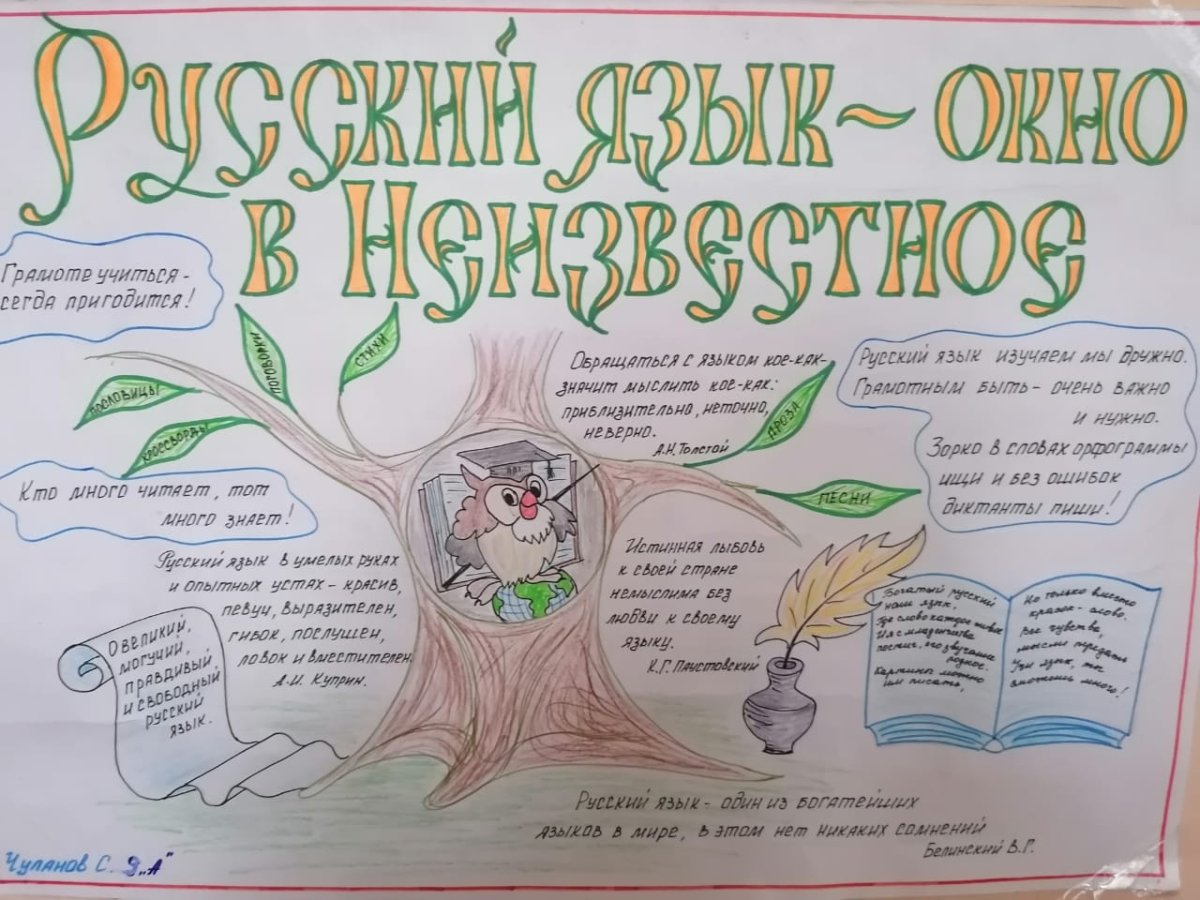 Русский язык ~ окно
в Неизвестное
Грамоте учиться -
сегда пригодится!
пословицы
поговорки
стихи
кроссворды
Обращаться с языком кое-как-
значит мыслить кое-как:
приблизительно, неточно,
неверно.
А.Н.Толстой
проза
песни
Русский язык изучаем мы дружно.
Грамотным быть - очень важно
и нужно.
Зорко в словах орфограммы
ищи и без ошибок
диктанты пиши!
Кто много читает, тот
много знает!
Русский язык в умелых руках
и опытных устах - красив,
певуч, выразителен,
гибок, послушен,
ловок и вместителен.
А.И. Куприн.
Истинная любовь
к своей стране
немыслима без
любви к своему
языку.
К.Г.Паустовский
О великий,
могучий,
правдивый
и свободный
русский
язык.
Богатый русский
наш язык,
Где слово каждое
И я с младенчества
постиг, его звучание
родное.
Картины можно
им писать,
Но только вместо
красок - слово.
Все чувства,
мысли передать
Учи язык, ты
сможешь много!
Русский язык - один из богатейших
языков в мире, в этом нет никаких сомнений
Белинский В.Г.
Чупанов С. 9„А"